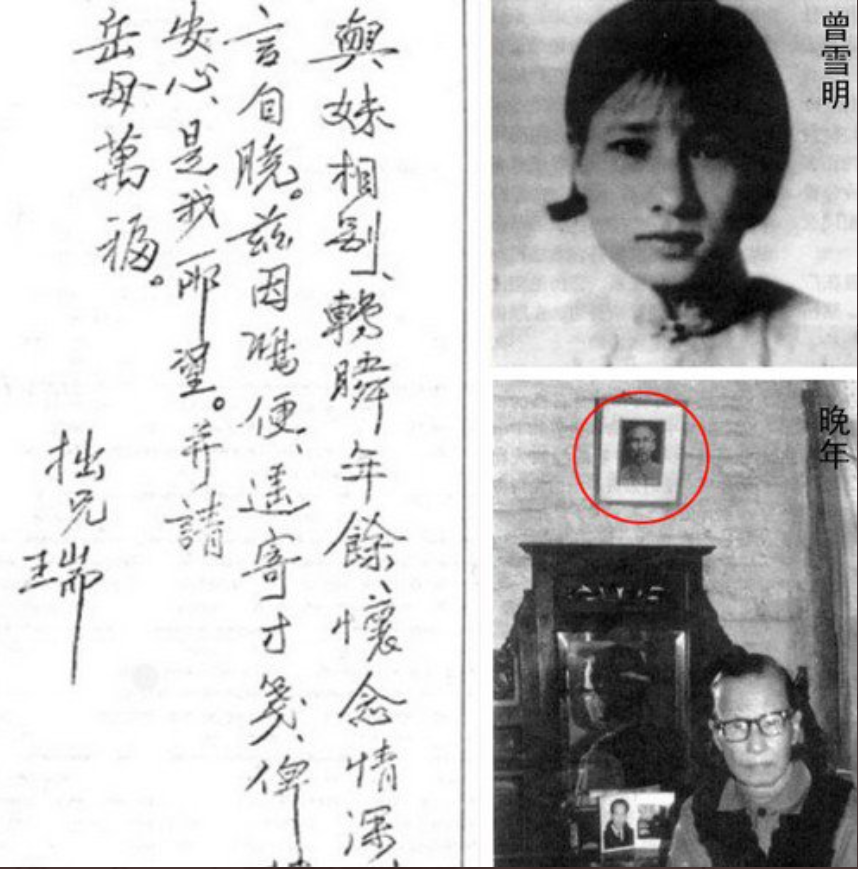 與妹相別、轉瞬年餘、懷念情深、
言自曉。茲因鴻便、遙寄寸箋、俾
安心、是我所望。并請
岳母萬福。
拙兄瑞
曾雪明
晚年